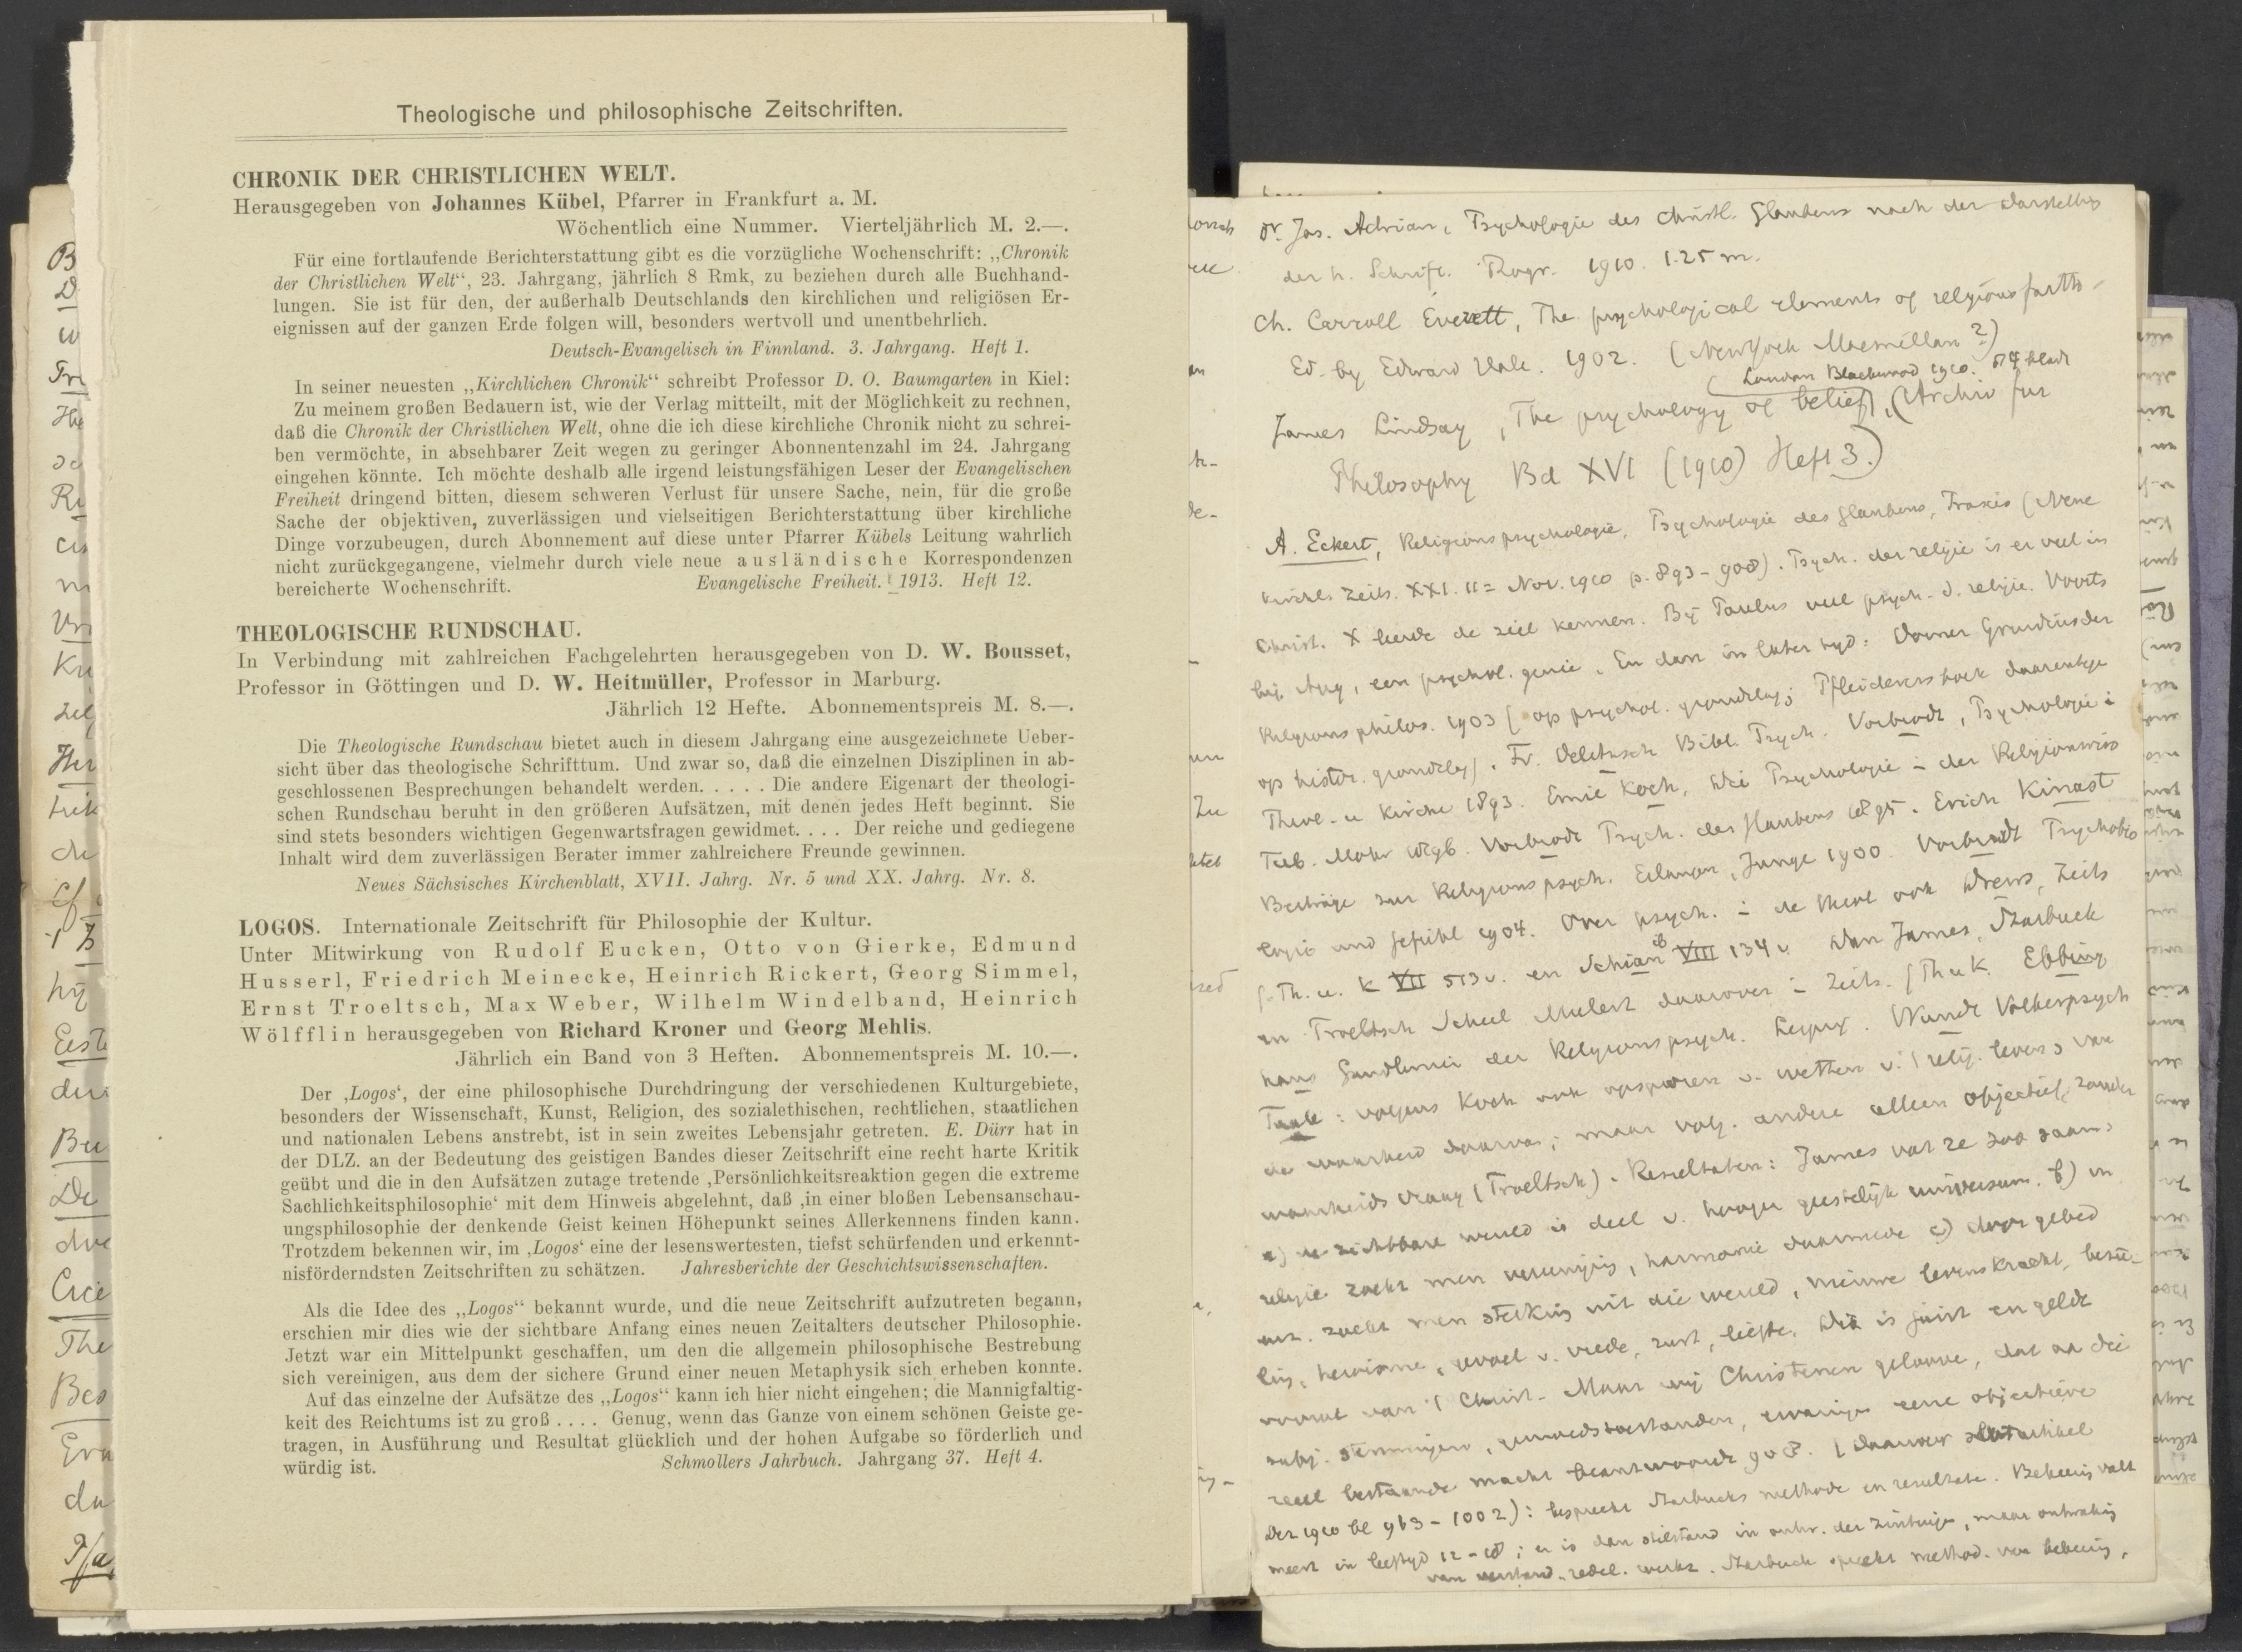 Theologische und philosophische Zeitschriften.
CHRONIK DER CHRISTLICHEN WELT.
Herausgegeben von Johannes Kübel, Pfarrer in Frankfurt a. M.
Wöchentlich eine Nummer. Vierteljährlich M. 2.—.
Für eine fortlaufende Berichterstattung gibt es die vorzügliche Wochenschrift: „Chronik
der Christlichen Welt“, 23. Jahrgang, jährlich 8 Rmk, zu beziehen durch alle Buchhand-
lungen. Sie ist für den, der außerhalb Deutschlands den kirchlichen und religiösen Er-
eignissen auf der ganzen Erde folgen will, besonders wertvoll und unentbehrlich.
Deutsch-Evangelisch in Finnland. 3. Jahrgang. Heft 1.
In seiner neuesten „Kirchlichen Chronik“ schreibt Professor D. O. Baumgarten in Kiel:
Zu meinem großen Bedauern ist, wie der Verlag mitteilt, mit der Möglichkeit zu rechnen,
daß die Chronik der Christlichen Welt, ohne die ich diese kirchliche Chronik nicht zu schrei-
ben vermöchte, in absehbarer Zeit wegen zu geringer Abonnentenzahl im 24. Jahrgang
eingehen könnte. Ich möchte deshalb alle irgend leistungsfähigen Leser der Evangelischen
Freiheit dringend bitten, diesem schweren Verlust für unsere Sache, nein, für die große
Sache der objektiven, zuverlässigen und vielseitigen Berichterstattung über kirchliche
Dinge vorzubeugen, durch Abonnement auf diese unter Pfarrer Kübels Leitung wahrlich
nicht zurückgegangene, vielmehr durch viele neue ausländische Korrespondenzen
bereicherte Wochenschrift. Evangelische Freiheit. 1913. Heft 12.
THEOLOGISCHE RUNDSCHAU.
In Verbindung mit zahlreichen Fachgelehrten herausgegeben von D. W. Bousset,
Professor in Göttingen und D. W. Heitmüller, Professor in Marburg.
Jährlich 12 Hefte. Abonnementspreis M. 8.—.
Die Theologische Rundschau bietet auch in diesem Jahrgang eine ausgezeichnete Ueber-
sicht über das theologische Schrifttum. Und zwar so, daß die einzelnen Disziplinen in ab-
geschlossenen Besprechungen behandelt werden. . . . . Die andere Eigenart der theologi-
schen Rundschau beruht in den größeren Aufsätzen, mit denen jedes Heft beginnt. Sie
sind stets besonders wichtigen Gegenwartsfragen gewidmet. . . . Der reiche und gediegene
Inhalt wird dem zuverlässigen Berater immer zahlreichere Freunde gewinnen.
Neues Sächsisches Kirchenblatt, XVII. Jahrg. Nr. 5 und XX. Jahrg. Nr. 8.
LOGOS. Internationale Zeitschrift für Philosophie der Kultur.
Unter Mitwirkung von Rudolf Eucken, Otto von Gierke, Edmund
Husserl, Friedrich Meinecke, Heinrich Rickert, Georg Simmel,
Ernst Troeltsch, Max Weber, Wilhelm Windelband, Heinrich
Wölfflin herausgegeben von Richard Kroner und Georg Mehlis.
Jährlich ein Band von 3 Heften. Abonnementspreis M. 10.—.
Der ‚Logos‘, der eine philosophische Durchdringung der verschiedenen Kulturgebiete,
besonders der Wissenschaft, Kunst, Religion, des sozialethischen, rechtlichen, staatlichen
und nationalen Lebens anstrebt, ist in sein zweites Lebensjahr getreten. E. Dürr hat in
der DLZ. an der Bedeutung des geistigen Bandes dieser Zeitschrift eine recht harte Kritik
geübt und die in den Aufsätzen zutage tretende ‚Persönlichkeitsreaktion gegen die extreme
Sachlichkeitsphilosophie‘ mit dem Hinweis abgelehnt, daß ‚in einer bloßen Lebensanschau-
ungsphilosophie der denkende Geist keinen Höhepunkt seines Allerkennens finden kann.
Trotzdem bekennen wir, im ‚Logos‘ eine der lesenswertesten, tiefst schürfenden und erkennt-
nisförderndsten Zeitschriften zu schätzen. Jahresberichte der Geschichtswissenschaften.
Als die Idee des „Logos“ bekannt wurde, und die neue Zeitschrift aufzutreten begann,
erschien mir dies wie der sichtbare Anfang eines neuen Zeitalters deutscher Philosophie.
Jetzt war ein Mittelpunkt geschaffen, um den die allgemein philosophische Bestrebung
sich vereinigen, aus dem der sichere Grund einer neuen Metaphysik sich erheben konnte.
Auf das einzelne der Aufsätze des „Logos“ kann ich hier nicht eingehen; die Mannigfaltig-
keit des Reichtums ist zu groß . . . . Genug, wenn das Ganze von einem schönen Geiste ge-
tragen, in Ausführung und Resultat glücklich und der hohen Aufgabe so förderlich und
würdig ist. Schmollers Jahrbuch. Jahrgang 37. Heft 4.
Dr. Jos. Adrian, Psychologie des christl. Glaubens nach der Darstellung
der h. Schrift. 1910. 1.25 m.
Ch. Carroll Everett, The psychological elements of religious faith
Ed. by Edward Hale. 1902. (New York Macmillan?)
(London Blackwood 1910.
James Lindsay, The psychology of belief, (Archiv für
Philosophy Bd XVI (1910) Heft 3.)
A. Eckert, Religionspsychologie, Psychologie des Glaubens, Praxis (Neue
Kirchl. Zeits. XXI. 11 = Nov. 1910 p. 893-908). Psych. der religie is er veel in
Christ. X leerde de ziel kennen. Bij Paulus veel psych. d. religie. Voorts
bij Aug, een psychol. genie. En dan in later tijd: Dorner Grundriss der
Religionsphilos. 1903 (op psychol. grondslag; Pfleiderers boek daarentegen
op histor. grondslag). Fr. Delitzsch Bibl. Psych. Vorbrodt, Psychologie i
Theol. u Kirche 1893. Emil Koch, Die Psychologie i der Religionswiss
Vorbrodt Psych. des Glaubens 1895. Erich
Beiträge zur Religionspsych. Erlangen, Junge 1900. Vorbrodt Psychobio
logie und Gefühl 1904. Over psych. i de theol ook Drews, Zeits
f. Th. u. K VIII 134 v. Dan James, Starbuck
en Troeltsch Scheel daarover i Zeits. f Th u K. Ebbing
haus der Religionspsych. Leipzig. Wundt Völkerpsych
: volgens Koch ook opsporen v. wetten v. 't relig. leven, van
de waarheid daarvan; maar volg. andere alleen objectief, zonder
waarheids vraag (Troeltsch). Resultaten: James vat ze zoo saam:
a) de zichtbare wereld is deel v. hooger geestelijk universum. b) in
religie zoekt men vereeniging, harmonie daarmede c) door gebed
enz. zoekt men sterking uit die wereld, nieuwe levenskracht,
heroisme, gevoel v. vrede, rust, liefde. Dit is juist en geldt
vooral van 't Christ. Maar wij Christenen gelooven, dat aan die
subj. stemmingen, gemoedstoestanden, ervaringen eene objectieve
reeel bestaande macht beantwoordt 908. (Daarover slotartikel
Dez 1910 bl 963-1002): bespreekt Starbucks methode en resultaten. Bekeering valt
meest in leeftijd 12-18; er is dan stilstand in ontw. der zintuigen, maar ontwaking
van verstand, redel. werkz. Starbuck spreekt method. van bekeering,